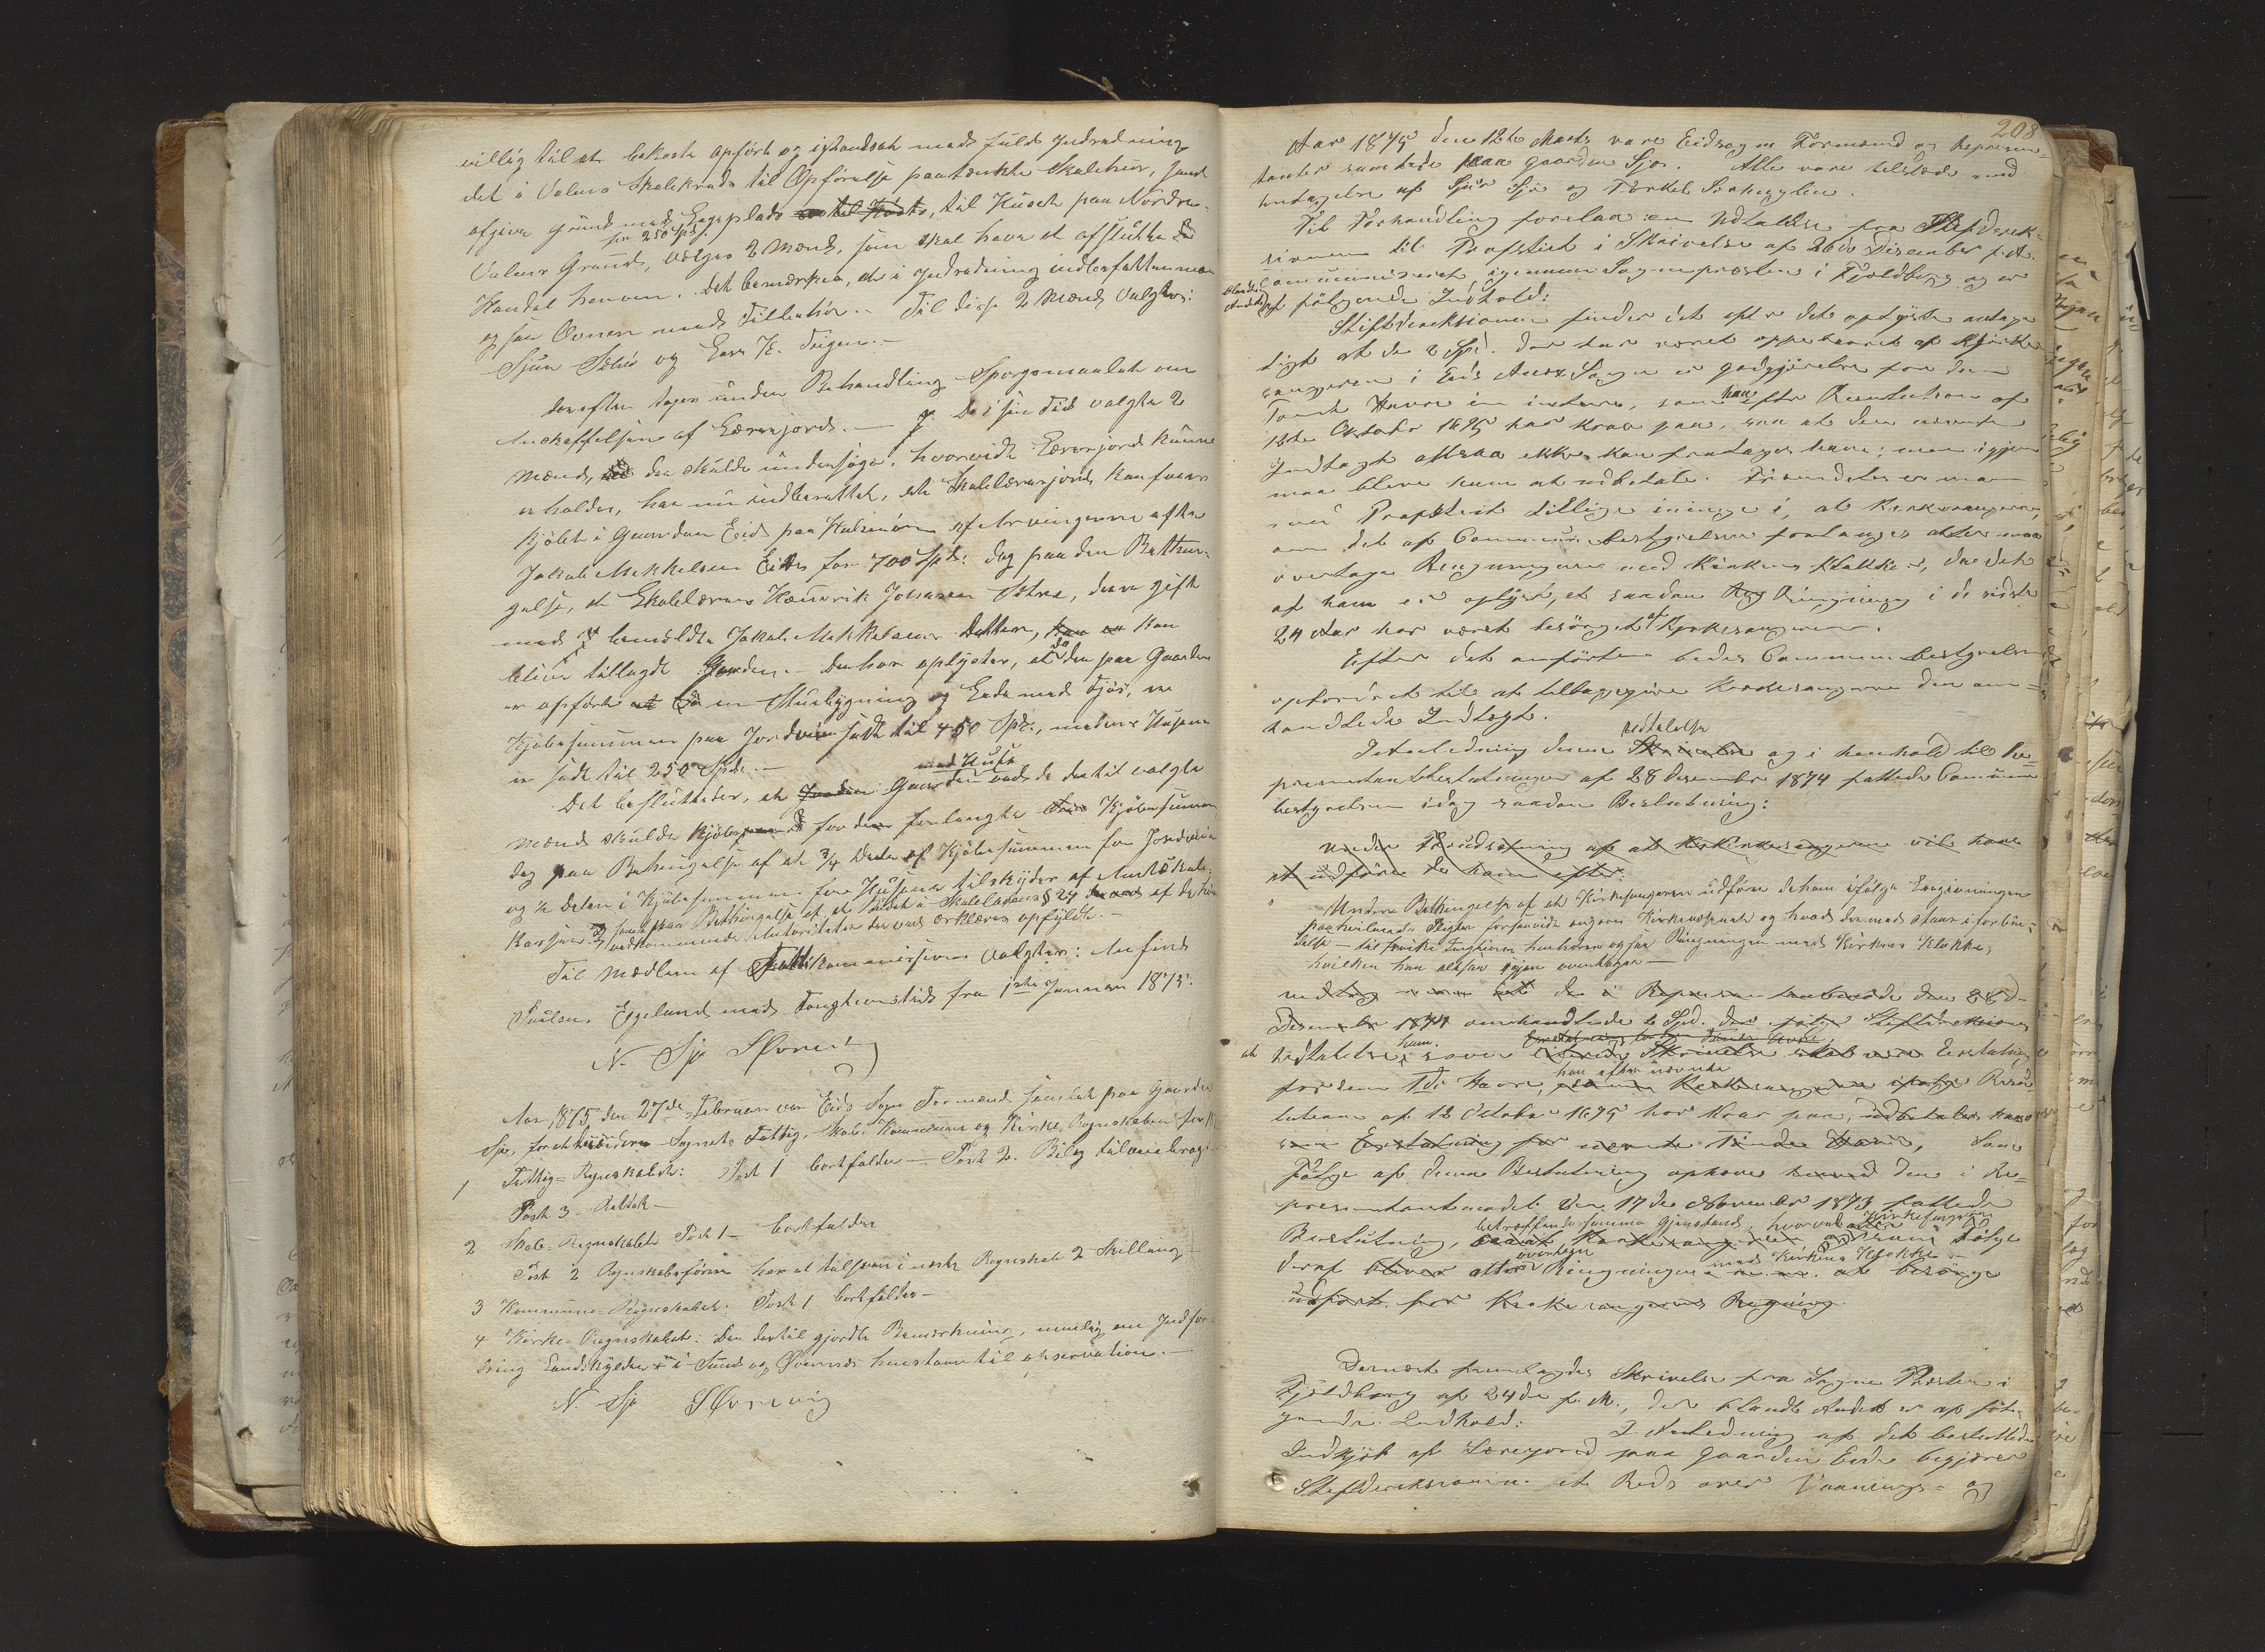 villig til at bekoste opført og istandsat med fuld Indredning
det i Valens Skolekreds til Opførelse paatænkte Skolehus, samt
afgive Grund med Legeplads til Huset paa Nordre
for 250 Spd.
Valens Grund, vælges 2 Mænd, som skal have at afslutte
Handel herom. Det bemærkes, at i Indredning indbefattes man
ogsaa Ovnen med Tilbehør. Til disse 2 Mænd valgtes:
Sjur Sæbø og Lars K. Teigen.
Derefter toges under Behandling Spørgsmaalet om
Anskaffelsen af Lærerjord. De i sin Tid valgte 2
Mænd, der skulde undersøge, hvorvidt Lærerjord kunne
erholdes, har nu indberettet, at Skolelærerjord kan faaes
kjøbt i Gaarden Eide paa Halsenøen af Arvingerne efter
Jakob Mikkelsen Eide for 700 Spd. dog paa den Betin-
gelse, at Skolelærer Henrik Johnsen Sætre, der er gift
med bemeldte Jakob Mikkelsens Datter, kan
blive tillagt Jorden. Der har oplystes, at da der paa Gaarden
er opført en Stuebygning og Lade med Fjøs, er
Kjøbesummen paa Jordveien sat til 450 Spd., medens Husene
er sat til 250 Spd.
med Huse
Det besluttedes, at Gaarden de dertil valgte
Mænd skulde kjøbe for den forlangte Kjøbesum
dog paa Betingelse af at 3/4 Dele af Kjøbesummen for Jordveien
og ½ Delen i Kjøbesummen for Husene tilskyder af Amtsskole-
Kassen, samt paa Betingelse af at Budet i Skolelovens § 24 af de
vedkommende Autoriteter derved erklæres opfyldt.
Til Medlem af Skattekommissionen valgtes: Anfind
Paulsen Egeland med Fungtionstid fra 1ste Januar 1875.
N. Sjo SØvrevig
Aar 1875, den 27de Februar var Eids Sogns Formænd samlet paa Gaarden
Sjo, for at revidere Sognets Fattig, Skole, Kommune og Kirke Regnskaber for
1 Fattig-Regnskabet: Post 1 bortfalder – Post 2. Bilag tilveiebragt
Post 3 – Rettet –
2 Skole-Regnskabet Post 1 – bortfalder
Post 2 Regnskabsføreren har at tilsvare i næste Regnskab 2 Skilling –
3 Kommune-Regnskabet: Post 1 bortfalder –
4 Kirke-Regnskabet: Den dertil gjordte Bemærkning, nemlig om Indfor-
dring Landskylden i Sund og Øvrenes henstaar til observation. –
N. Sjo SØvrevig
208
Aar 1875 den 12te Marts vare Eidsogns Formænd og Repræsen-
tanter samlede paa gaarden Sjo. Alle vare tilstede med
Undtagelse af Sjur Sjo og Torkel
Til Forhandling forelaa en Udtalelse fra Stiftsdirek-
tionen til Provstiet i Skrivelse af 26de Desember f. A.
communiceret igjennem Sognepræsten i Fjeldberg og er
blandt Andet af følgende Indhold:
Stiftsdirektionen finder det efter det oplyste antage-
ligt at de 2 Spd. der har været oppebaaret af Kirke-
sangeren i Eids Anex Sogn er godgjørelse for den
Tønde Havre in natura, som han efter Resolution af
12te Oktober 1695 har Krav paa, saa at den nævnte
Indtægt altsaa ikke kan fratages ham; men igjen
maa blive ham at udbetale. Fremdeles er man
med Provstiet tillige enige i, at Kirkesangeren,
om det af Communebestyrelsen forlanges atter maa
overtage Ringningen med Kirkens Klokke, da det
af ham er oplyst, at saadan Ringning i de sidste
24 Aar har været besørget af Kirkesangeren.
Efter det anførte bedes Communebestyrelsen
opfordret til at tilbagegive Kirkesangeren den om-
handlede Indtægt.
Udtalelse
I Anledning denne og i henhold til Re-
præsentantbeslutningen af 28 Desember 1874 fattede Commune-
bestyrelsen idag saadan Beslutning:
Under Forudsætning af at Kirkesangeren vil have
at udføre de ham efter:
Under Betingelse af at Kirkesangeren udfører de ham ifølge Lovgivningen
paahvilende Pligter forsaavidt angaar Kirkevæsenet og hvad dermed staar i forbin-
delse – til hvilke Fungtioner henhører ogsaa Ringningen med Kirkens Klokke,
hvilken han altsaa igjen overtager –
de i Repræsentantmøde den 28de
Desember 1874 omhandlede 2 Spd. Stiftsdirektionens
at Udtalelse ham. Skrivelse Erstatning
for den Tde Havre, han efter nævnte Kirkesangeren ifølge Reso-
lution af 12 October 1695 har Krav paa, udbetales ham
som Erstatning for nævnte Tønde Havre, Som
Følge af denne Beslutning ophæves den i Re-
præsentantmødet den 17de November 1873 fattede
betræffende samme Gjenstand, hvorved Kirkesangeren
Beslutning, Kirkesangeren som Følge
overtage med Kirkens Klokke –
deraf bliver atter Ringningen at besørge
udført for Kirkesangerens Regning.
Dernæst fremlagdes Skrivelse fra Sogne Præsten i
Fjeldberg af 24de f. M., der blandt Andet er af føl-
gende Indhold: I Anledning af det besluttede
Indkjøb af Lærerjord paa Gaarden Eide begjærer
Stiftsdirektionen et Rids over Vaanings- og